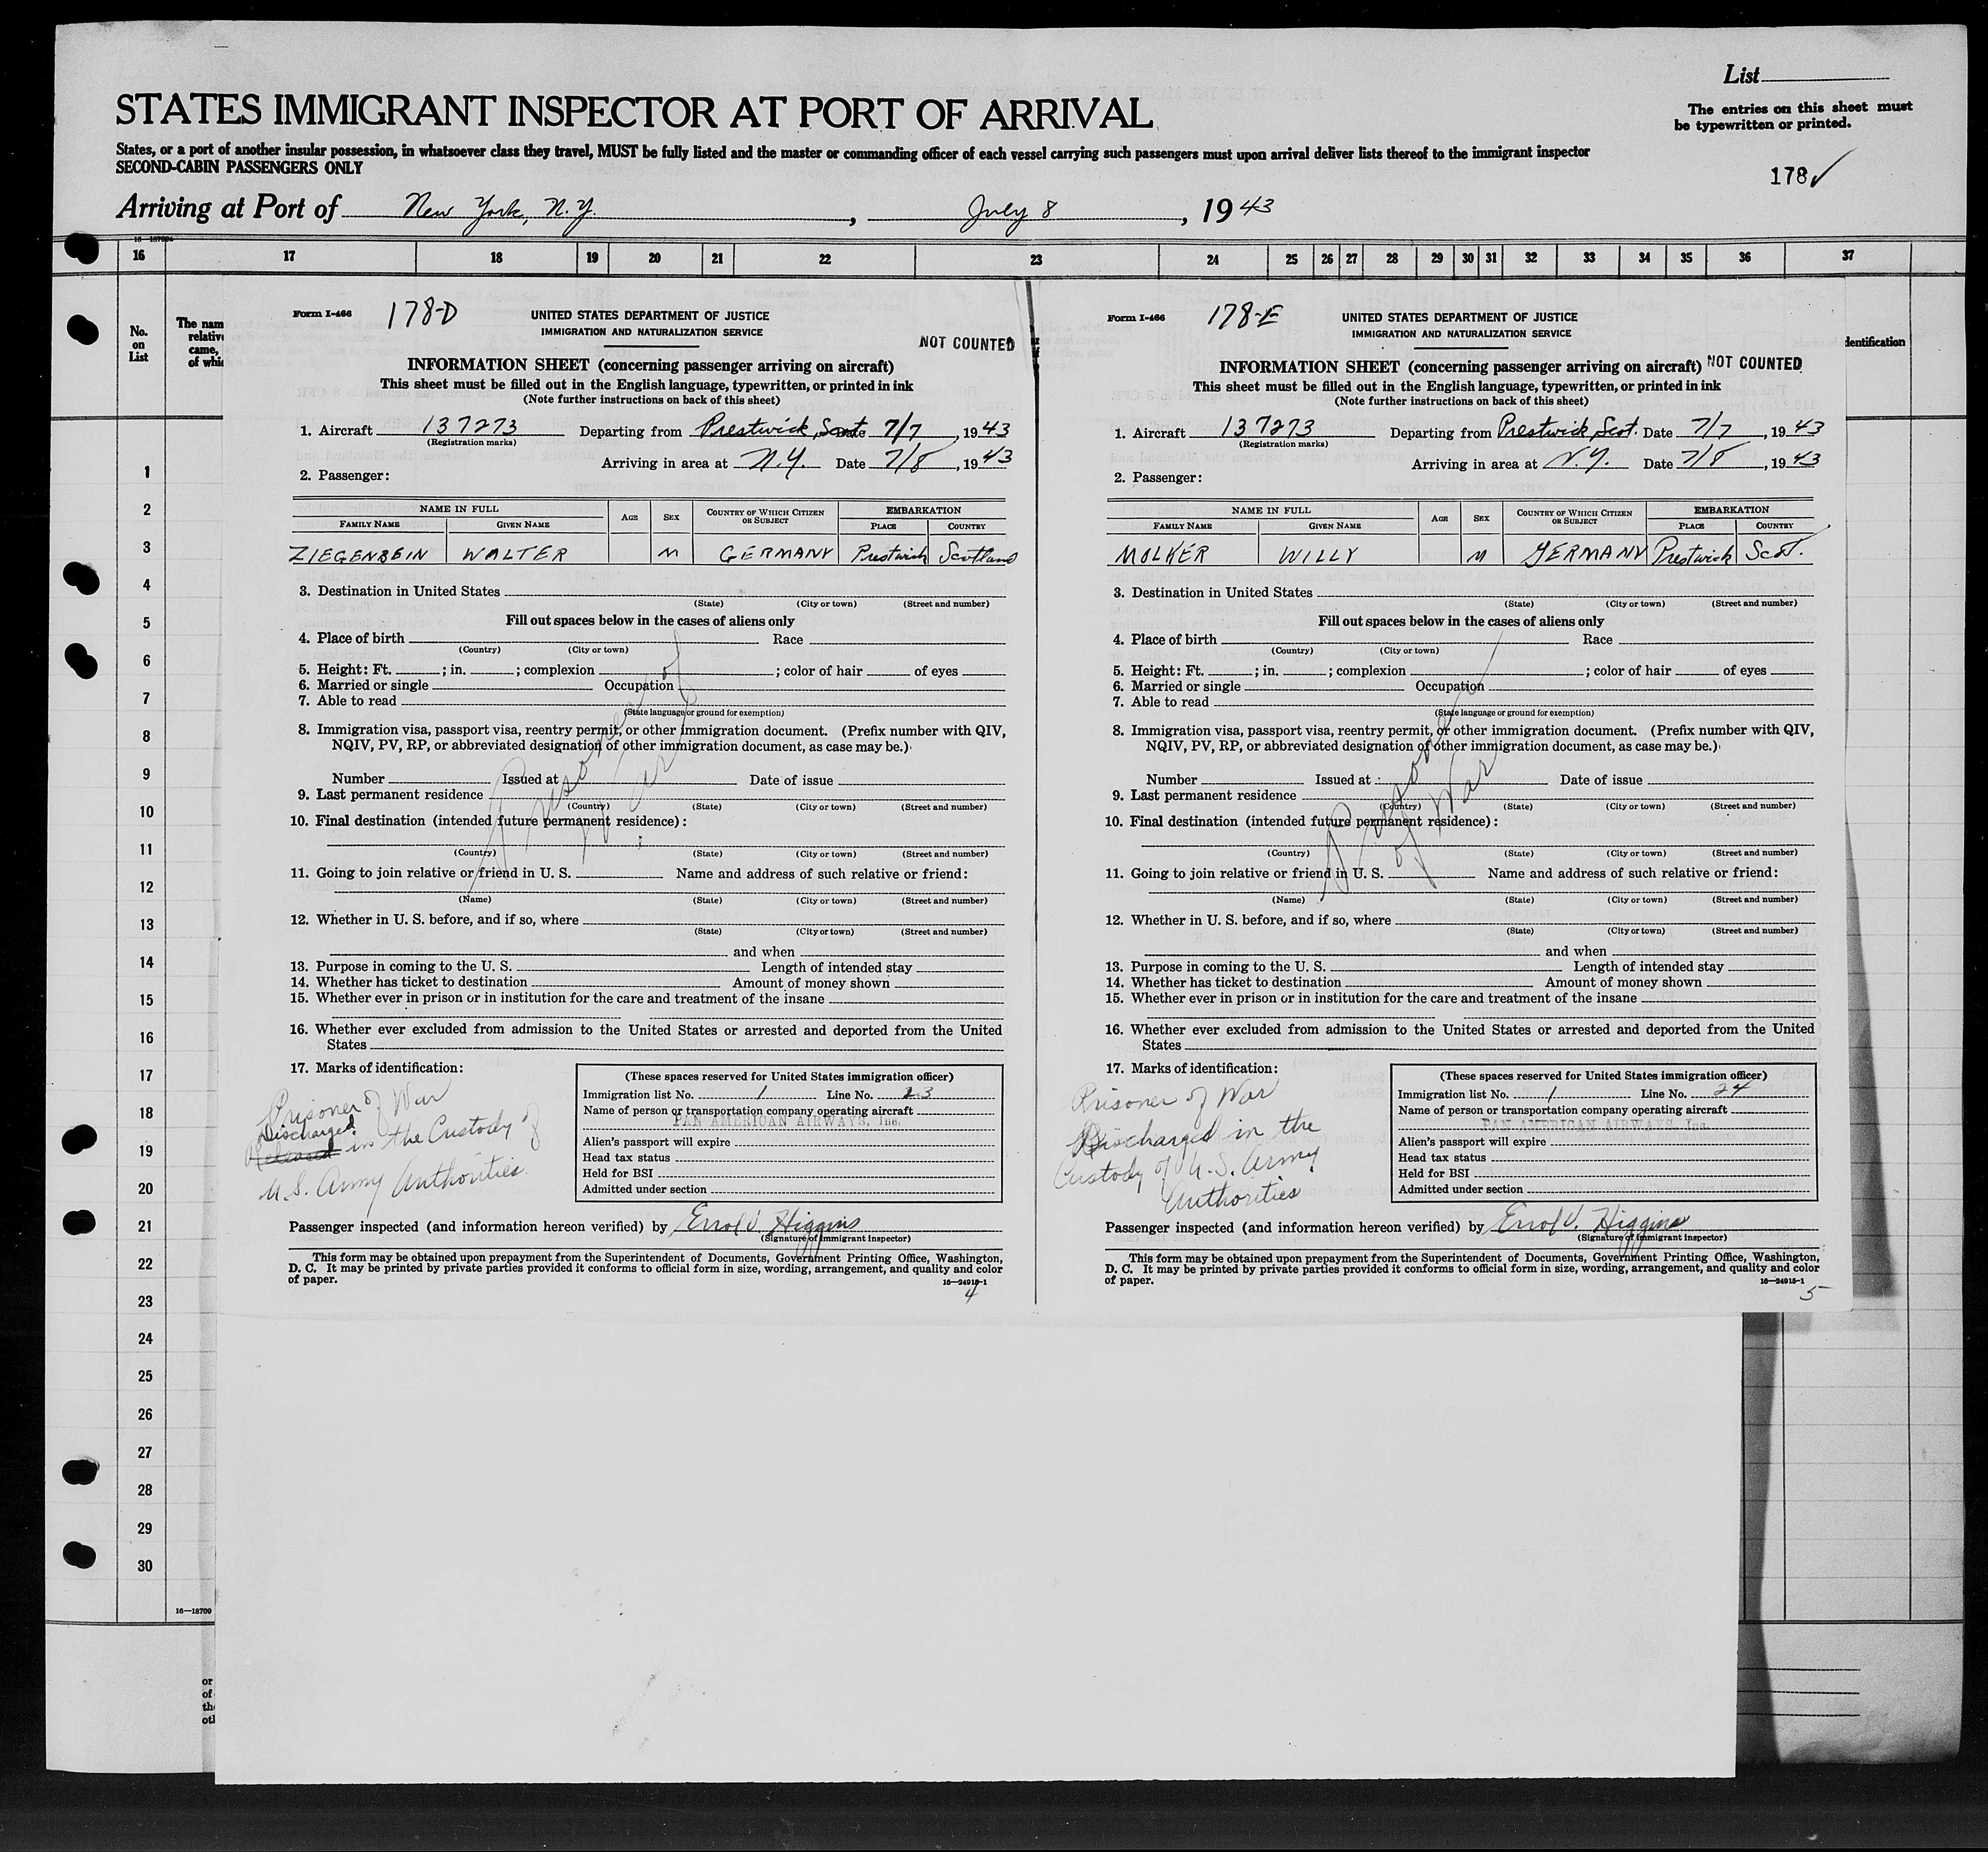 List
STATES IMMIGRANT INSPECTOR AT PORT OF ARRIVAL
The entries on this sheet must
be typewritten or printed.
States, or a port of another insular possession, in whatsoever class they travel, MUST be fully listed and the master or commanding officer of each vessel carrying such passengers must upon arrival deliver lists thereof to the immigrant inspector
SECOND-CABIN PASSENGERS ONLY
178 ✓
Arriving at Port of New York, N.Y., July 8, 1943
16 17 18 19 20 21 22 23 24 25 26 27 28 29 30 31 32 33 34 35 36 37
No.
on
List
The nam
relative
came,
of whic
dentification
1
2
3
4
5
6
7
8
9
10
11
12
13
14
15
16
17
18
19
20
21
22
23
24
25
26
27
28
29
30
16—18709
or
of
the
oth
Form I-466
178-D
UNITED STATES DEPARTMENT OF JUSTICE
IMMIGRATION AND NATURALIZATION SERVICE
NOT COUNTED
INFORMATION SHEET (concerning passenger arriving on aircraft)
This sheet must be filled out in the English language, typewritten, or printed in ink
(Note further instructions on back of this sheet)
1. Aircraft 137273 Departing from Prestwick, Scot Date 7/7, 1943
(Registration marks)
Arriving in area at N.Y. Date 7/8, 1943
2. Passenger:
NAME IN FULL AGE SEX COUNTRY OF WHICH CITIZEN OR SUBJECT EMBARKATION
FAMILY NAME GIVEN NAME PLACE COUNTRY
ZIEGENBEIN WALTER M GERMANY Prestwick Scotland
3. Destination in United States
(State) (City or town) (Street and number)
Fill out spaces below in the cases of aliens only
4. Place of birth Race
(Country) (City or town)
5. Height: Ft. ; in. ; complexion ; color of hair of eyes
6. Married or single Occupation
7. Able to read
(State language or ground for exemption)
8. Immigration visa, passport visa, reentry permit, or other immigration document. (Prefix number with QIV,
NQIV, PV, RP, or abbreviated designation of other immigration document, as case may be.)
Number Issued at Date of issue
9. Last permanent residence
(Country) (State) (City or town) (Street and number)
10. Final destination (intended future permanent residence):
(Country) (State) (City or town) (Street and number)
Prisoner of
War
11. Going to join relative or friend in U. S. Name and address of such relative or friend:
(Name) (State) (City or town) (Street and number)
12. Whether in U. S. before, and if so, where
(State) (City or town) (Street and number)
and when
13. Purpose in coming to the U. S. Length of intended stay
14. Whether has ticket to destination Amount of money shown
15. Whether ever in prison or in institution for the care and treatment of the insane
16. Whether ever excluded from admission to the United States or arrested and deported from the United
States
17. Marks of identification:
Prisoner of War
Discharged
Released in the Custody of
U.S. Army Authorities.
(These spaces reserved for United States immigration officer)
Immigration list No. 1 Line No. 23
Name of person or transportation company operating aircraft
PAN AMERICAN AIRWAYS, Inc.
Alien's passport will expire
Head tax status
Held for BSI
Admitted under section
Passenger inspected (and information hereon verified) by Errol V. Higgins
(Signature of immigrant inspector)
This form may be obtained upon prepayment from the Superintendent of Documents, Government Printing Office, Washington,
D. C. It may be printed by private parties provided it conforms to official form in size, wording, arrangement, and quality and color
of paper.
16—24915-1
4
Form I-466
178-E
UNITED STATES DEPARTMENT OF JUSTICE
IMMIGRATION AND NATURALIZATION SERVICE
INFORMATION SHEET (concerning passenger arriving on aircraft) NOT COUNTED
This sheet must be filled out in the English language, typewritten, or printed in ink
(Note further instructions on back of this sheet)
1. Aircraft 137273 Departing from Prestwick, Scot. Date 7/7, 1943
(Registration marks)
Arriving in area at N.Y. Date 7/8, 1943
2. Passenger:
NAME IN FULL AGE SEX COUNTRY OF WHICH CITIZEN OR SUBJECT EMBARKATION
FAMILY NAME GIVEN NAME PLACE COUNTRY
MOLKER WILLY M GERMANY Prestwick Scot.
3. Destination in United States
(State) (City or town) (Street and number)
Fill out spaces below in the cases of aliens only
4. Place of birth Race
(Country) (City or town)
5. Height: Ft. ; in. ; complexion ; color of hair of eyes
6. Married or single Occupation
7. Able to read
(State language or ground for exemption)
8. Immigration visa, passport visa, reentry permit, or other immigration document. (Prefix number with QIV,
NQIV, PV, RP, or abbreviated designation of other immigration document, as case may be.)
Number Issued at Date of issue
9. Last permanent residence
(Country) (State) (City or town) (Street and number)
10. Final destination (intended future permanent residence):
(Country) (State) (City or town) (Street and number)
Prisoner
of War
11. Going to join relative or friend in U. S. Name and address of such relative or friend:
(Name) (State) (City or town) (Street and number)
12. Whether in U. S. before, and if so, where
(State) (City or town) (Street and number)
and when
13. Purpose in coming to the U. S. Length of intended stay
14. Whether has ticket to destination Amount of money shown
15. Whether ever in prison or in institution for the care and treatment of the insane
16. Whether ever excluded from admission to the United States or arrested and deported from the United
States
17. Marks of identification:
Prisoner of War
Discharged in the
Custody of U.S. Army
Authorities
(These spaces reserved for United States immigration officer)
Immigration list No. 1 Line No. 24
Name of person or transportation company operating aircraft
PAN AMERICAN AIRWAYS, Inc.
Alien's passport will expire
Head tax status
Held for BSI
Admitted under section
Passenger inspected (and information hereon verified) by Errol V. Higgins
(Signature of immigrant inspector)
This form may be obtained upon prepayment from the Superintendent of Documents, Government Printing Office, Washington,
D. C. It may be printed by private parties provided it conforms to official form in size, wording, arrangement, and quality and color
of paper.
16—24915-1
5